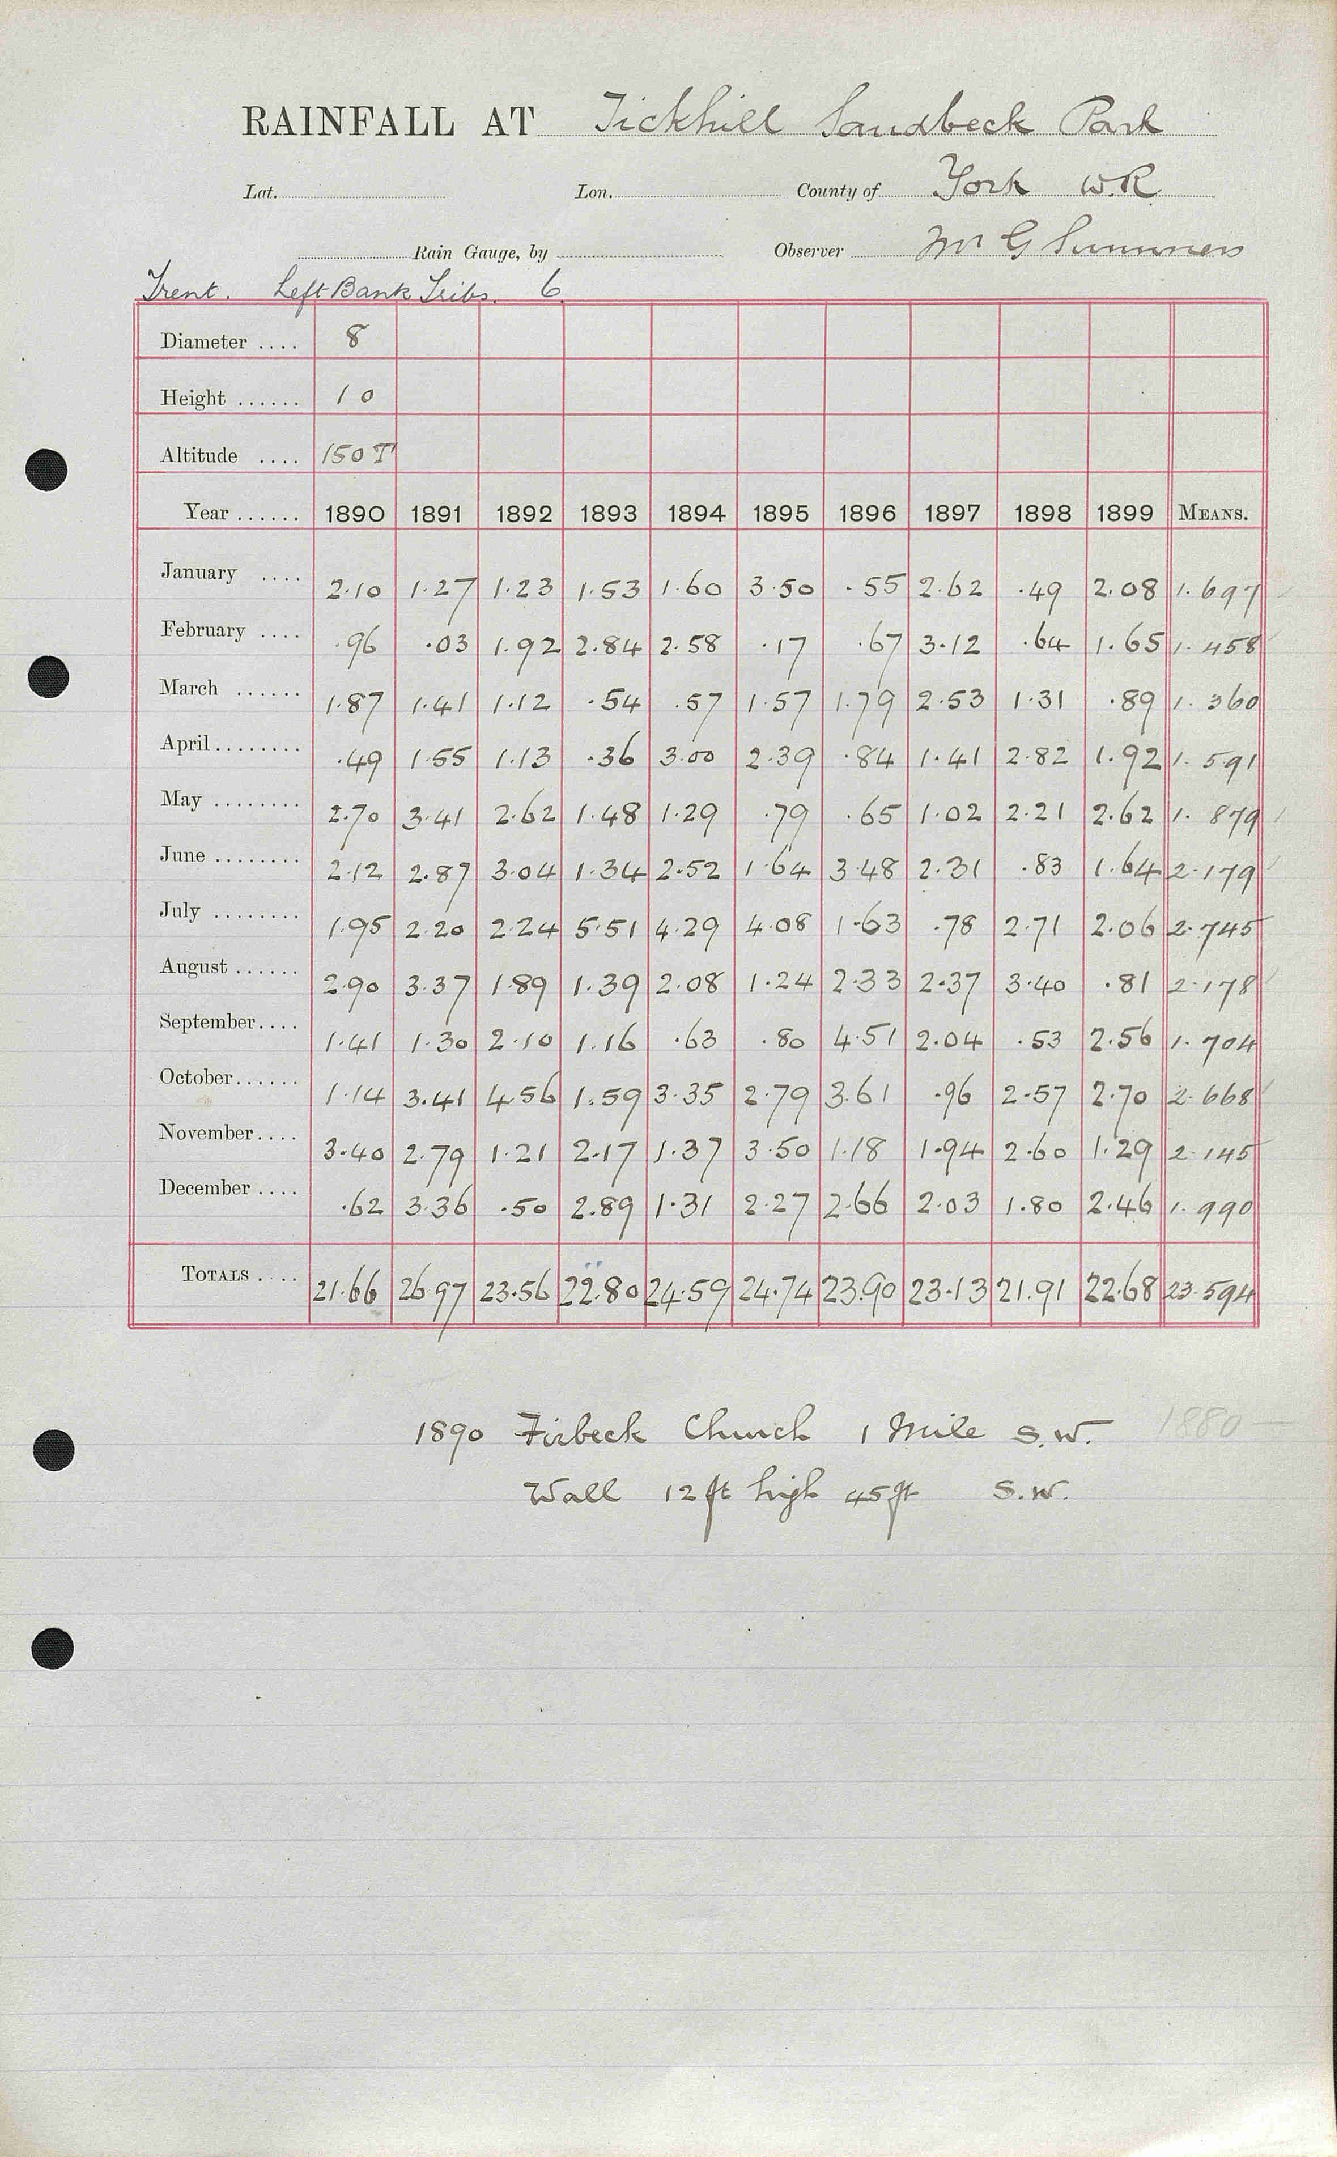 RAINFALL AT Tickhill Sandbeck Park
Lat. Lon. County of York W.R.
Rain Gauge, by Observer Mr G Summers
Trent. Left Bank Tribs. 6.
Diameter .... 8
Height ...... 1 0
Altitude .... 150 T
Year ...... 1890 1891 1892 1893 1894 1895 1896 1897 1898 1899 MEANS.
January .... 2.10 1.27 1.23 1.53 1.60 3.50 .55 2.62 .49 2.08 1.697
February .... .96 .03 1.92 2.84 2.58 .17 .67 3.12 .64 1.65 1.458
March ...... 1.87 1.41 1.12 .54 .57 1.57 1.79 2.53 1.31 .89 1.360
April ........ .49 1.55 1.13 .36 3.00 2.39 .84 1.41 2.82 1.92 1.591
May ........ 2.70 3.41 2.62 1.48 1.29 .79 .65 1.02 2.21 2.62 1.879
June ........ 2.12 2.87 3.04 1.34 2.52 1.64 3.48 2.31 .83 1.64 2.179
July ........ 1.95 2.20 2.24 5.51 4.29 4.08 1.63 .78 2.71 2.06 2.745
August ...... 2.90 3.37 1.89 1.39 2.08 1.24 2.33 2.37 3.40 .81 2.178
September .... 1.41 1.30 2.10 1.16 .63 .80 4.51 2.04 .53 2.56 1.704
October ...... 1.14 3.41 4.56 1.59 3.35 2.79 3.61 .96 2.57 2.70 2.668
November .... 3.40 2.79 1.21 2.17 1.37 3.50 1.18 1.94 2.60 1.29 2.145
December .... .62 3.36 .50 2.89 1.31 2.27 2.66 2.03 1.80 2.46 1.990
TOTALS .... 21.66 26.97 23.56 22.80 24.59 24.74 23.90 23.13 21.91 22.68 23.594
1890 Firbeck Church 1 Mile S.W. 1880-
Wall 12 ft high 45 ft S.W.